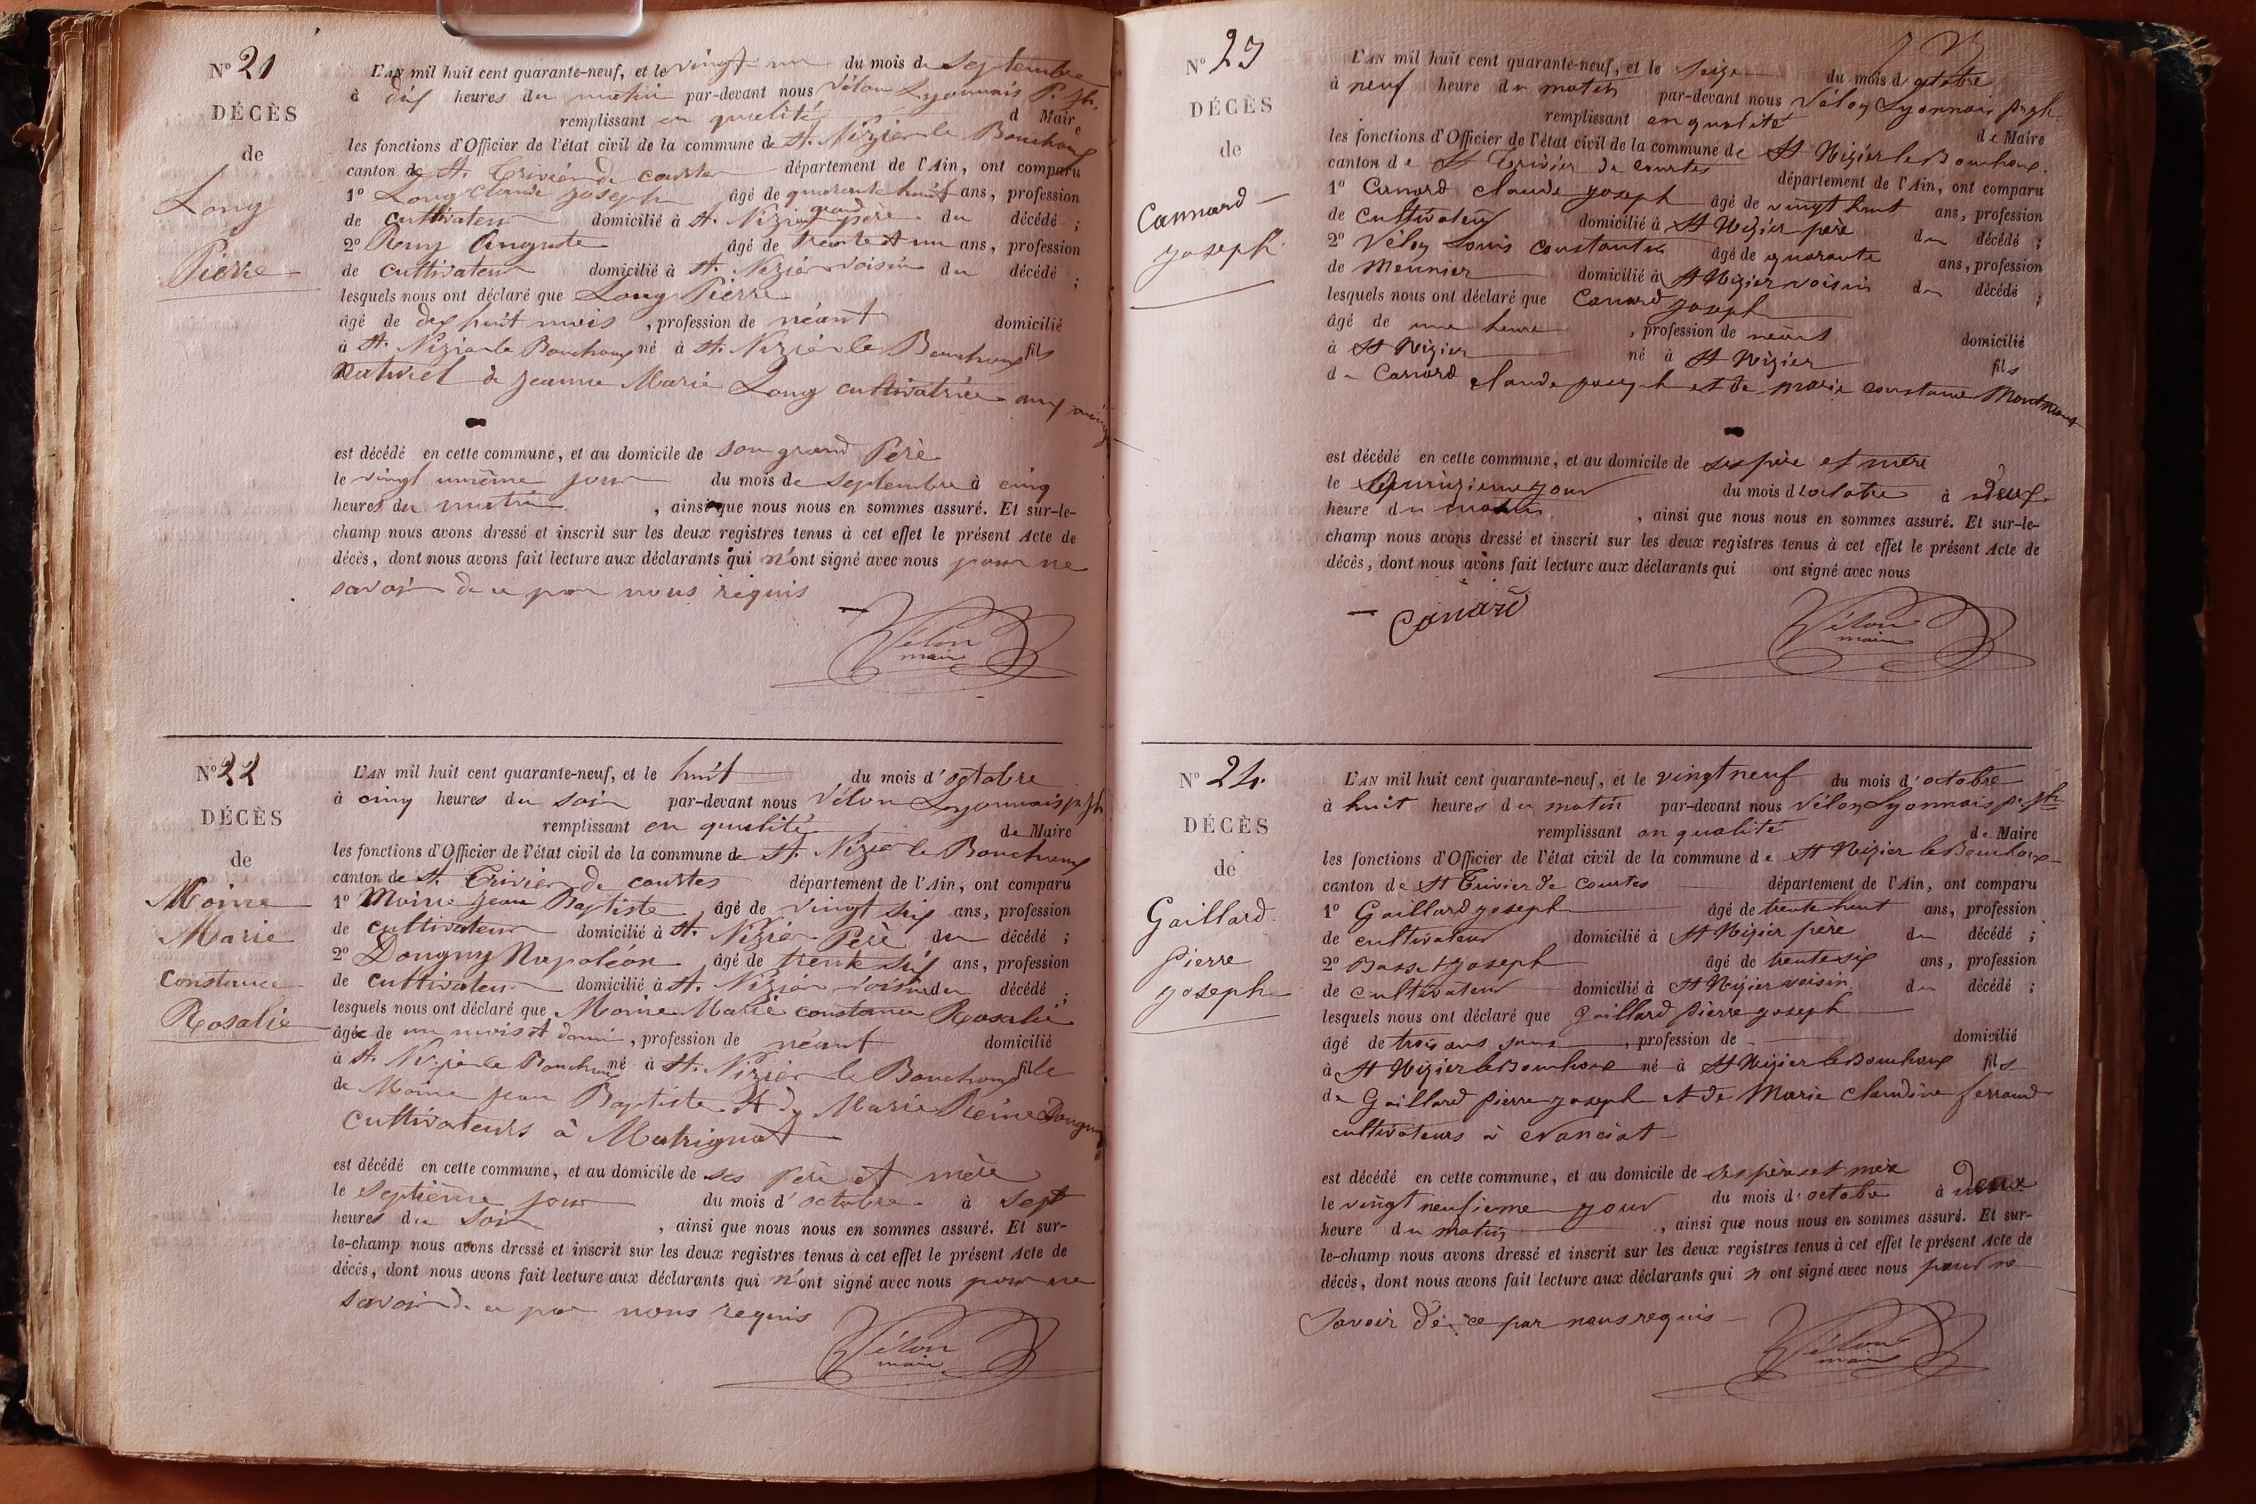 N° 21
DÉCÈS
de
Long
Pierre
L'AN mil huit cent quarante-neuf, et le vingt un du mois de Septembre
à dix heures du matin par-devant nous Vélon Lyonnais P. Jh.
remplissant en qualité de Maire
les fonctions d'Officier de l'état civil de la commune de St. Nizier le Bouchoux
canton de St. Trivier de courtes département de l'Ain, ont comparu
1° Long Claude Joseph âgé de quarante huit ans, profession
de cultivateur domicilié à St. Nizier grand père du décédé ;
2° Remy Auguste âgé de trente et un ans, profession
de cultivateur domicilié à St. Nizier voisin du décédé ;
lesquels nous ont déclaré que Long Pierre
âgé de dix huit mois , profession de néant domicilié
à St. Nizier le Bouchoux né à St. Nizier le Bouchoux fils
naturel de Jeanne Marie Long cultivatrice
est décédé en cette commune, et au domicile de son grand Père
le vingt unième jour du mois de Septembre à cinq
heures du matin , ainsi que nous nous en sommes assuré. Et sur-le-
champ nous avons dressé et inscrit sur les deux registres tenus à cet effet le présent Acte de
décès, dont nous avons fait lecture aux déclarants qui n'ont signé avec nous pour ne
savoir de ce par nous requis
Vélon
maire
N° 22
DÉCÈS
de
Moine
Marie
Constance
Rosalie
L'AN mil huit cent quarante-neuf, et le huit du mois d'octobre
à cinq heures du soir par-devant nous Vélon Lyonnais p. Jh
remplissant en qualité de Maire
les fonctions d'Officier de l'état civil de la commune de St. Nizier le Bouchoux
canton de St. Trivier de courtes département de l'Ain, ont comparu
1° Moine Jean Baptiste âgé de vingt six ans, profession
de cultivateur domicilié à St. Nizier Père du décédé ;
2° Dougny Napoléon âgé de trente six ans, profession
de cultivateur domicilié à St. Nizier voisin du décédé ;
lesquels nous ont déclaré que Moine Marie constance Rosalie
âgée de un mois et demi , profession de néant domicilié
à St. Nizier le Bouchoux né à St. Nizier le Bouchoux fille
de Moine Jean Baptiste et de Marie Reine Dougny
cultivateurs à Matrignat
est décédé en cette commune, et au domicile de ses père et mère
le septième jour du mois d'octobre à sept
heures du soir , ainsi que nous nous en sommes assuré. Et sur-
le-champ nous avons dressé et inscrit sur les deux registres tenus à cet effet le présent Acte de
décès, dont nous avons fait lecture aux déclarants qui n'ont signé avec nous pour ne
savoir de ce par nous requis
Vélon
maire
N° 23
DÉCÈS
de
Cannard
joseph
L'AN mil huit cent quarante-neuf, et le seize du mois d'octobre
à neuf heure du matin par-devant nous Vélon Lyonnais p. jh
remplissant en qualité de Maire
les fonctions d'Officier de l'état civil de la commune de St Nizier le Bouchoux
canton de St Trivier de courtes département de l'Ain, ont comparu
1° Canard claude joseph âgé de vingt huit ans, profession
de cultivateur domicilié à St Nizier père du décédé ;
2° Vélon Louis constantin âgé de quarante ans, profession
de Meunier domicilié à St Nizier voisin du décédé ;
lesquels nous ont déclaré que Canard joseph
âgé de une heure , profession de néant domicilié
à St Nizier né à St Nizier fils
de Canard claude joseph et de Marie constance
est décédé en cette commune, et au domicile de ses père et mère
le quinzieme jour du mois d'octobre à deux
heure du matin , ainsi que nous nous en sommes assuré. Et sur-le-
champ nous avons dressé et inscrit sur les deux registres tenus à cet effet le présent Acte de
décès, dont nous avons fait lecture aux déclarants qui ont signé avec nous
Canard
Vélon
maire
N° 24
DÉCÈS
de
Gaillard
pierre
joseph
L'AN mil huit cent quarante-neuf, et le vingt neuf du mois d'octobre
à huit heures du matin par-devant nous Vélon Lyonnais p. jh
remplissant en qualité de Maire
les fonctions d'Officier de l'état civil de la commune de St Nizier le Bouchoux
canton de St Trivier de courtes département de l'Ain, ont comparu
1° Gaillard joseph âgé de trente huit ans, profession
de cultivateur domicilié à St Nizier père du décédé ;
2° Basset joseph âgé de trente six ans, profession
de cultivateur domicilié à St Nizier voisin du décédé ;
lesquels nous ont déclaré que Gaillard pierre joseph
âgé de trois ans , profession de domicilié
à St Nizier le Bouchoux né à St Nizier le Bouchoux fils
de Gaillard pierre joseph et de Marie claudine ferrand
cultivateurs à evanciat
est décédé en cette commune, et au domicile de ses père et mère
le vingt neufieme jour du mois d'octobre à deux
heure du matin , ainsi que nous nous en sommes assuré. Et sur-
le-champ nous avons dressé et inscrit sur les deux registres tenus à cet effet le présent Acte de
décès, dont nous avons fait lecture aux déclarants qui n ont signé avec nous pour ne
savoir de ce par nous requis
Vélon
maire